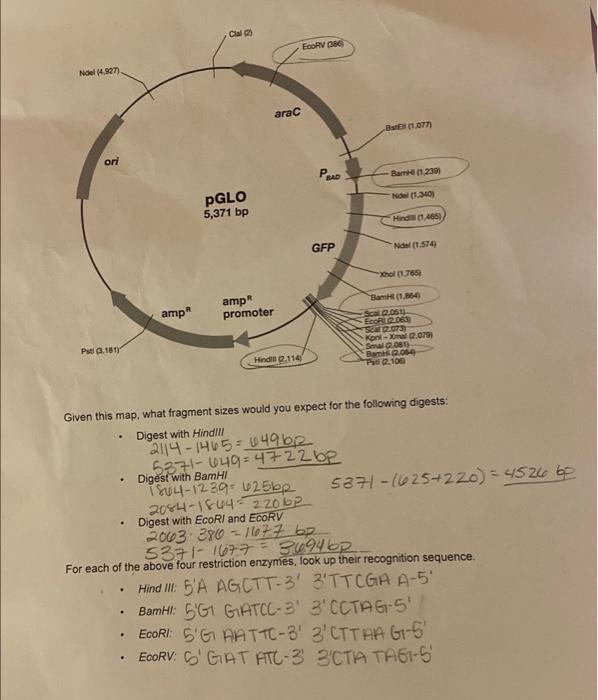 ClaI (2)
EcoRV (386)
NdeI (4,927)
araC
BstEII (1,077)
ori
PBAD
BamHI (1,239)
pGLO
5,371 bp
NdeI (1,340)
HindIII (1,465)
GFP
NdeI (1,574)
XhoI (1,765)
BamHI (1,864)
ampR
ampR
promoter
ScaI (2,051)
EcoRI (2,063)
ScaI (2,073)
KpnI - XmaI (2,079)
SmaI (2,081)
BamHI (2,084)
PstI (2,106)
PstI (3,181)
HindIII (2,114)
Given this map, what fragment sizes would you expect for the following digests:
• Digest with HindIII
2114 - 1465 = 649bp
5371 - 649 = 4722bp
• Digest with BamHI
1864-1239 = 625bp
5371 - (625+220) = 4526 bp
2084-1864 = 220bp
• Digest with EcoRI and EcoRV
2063-386 = 1677 bp
5371 - 1677 = 3694bp
For each of the above four restriction enzymes, look up their recognition sequence.
• Hind III: 5'A AGCTT-3' 3'TTCGA A-5'
• BamHI: 5'G GATCC-3' 3'CCTAG-5'
• EcoRI: 5'G AATTC-3' 3'CTTAA G-5'
• EcoRV: 5' GAT ATC-3' 3'CTA TAG-5'